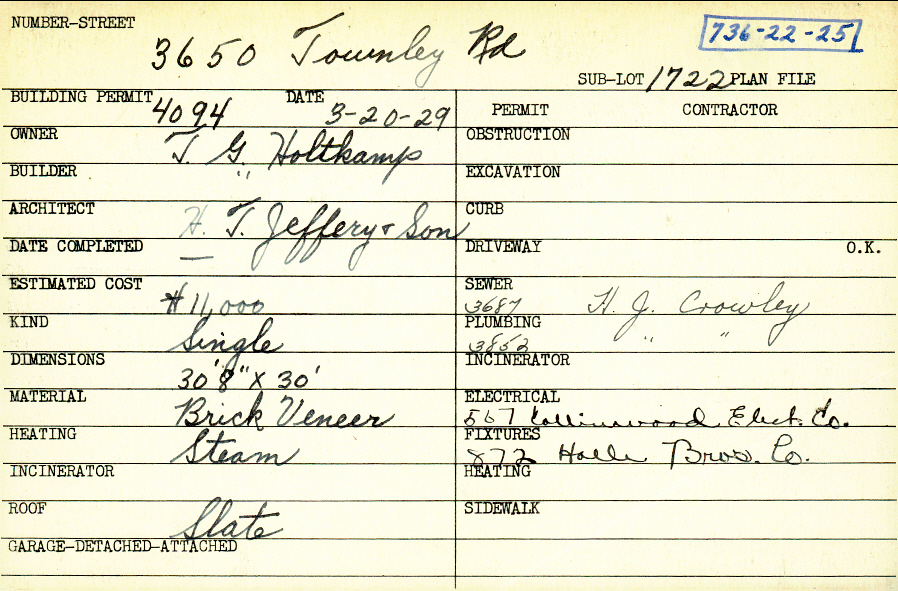 NUMBER-STREET
3650 Townley Rd
736-22-25
SUB-LOT 1722 PLAN FILE
BUILDING PERMIT 4094 DATE 3-20-29
PERMIT CONTRACTOR
OWNER T. G. Holtkamp
OBSTRUCTION
BUILDER "
EXCAVATION
ARCHITECT H. T. Jeffery & Son
CURB
DATE COMPLETED —
DRIVEWAY O.K.
ESTIMATED COST $11,000
SEWER 3687 H. J. Crowley
KIND Single
PLUMBING 3852 " "
DIMENSIONS 30'8" X 30'
INCINERATOR
MATERIAL Brick Veneer
ELECTRICAL 567 Collinwood Elect. Co.
HEATING Steam
FIXTURES 872 Halle Bros. Co.
INCINERATOR
HEATING
ROOF Slate
SIDEWALK
GARAGE-DETACHED-ATTACHED